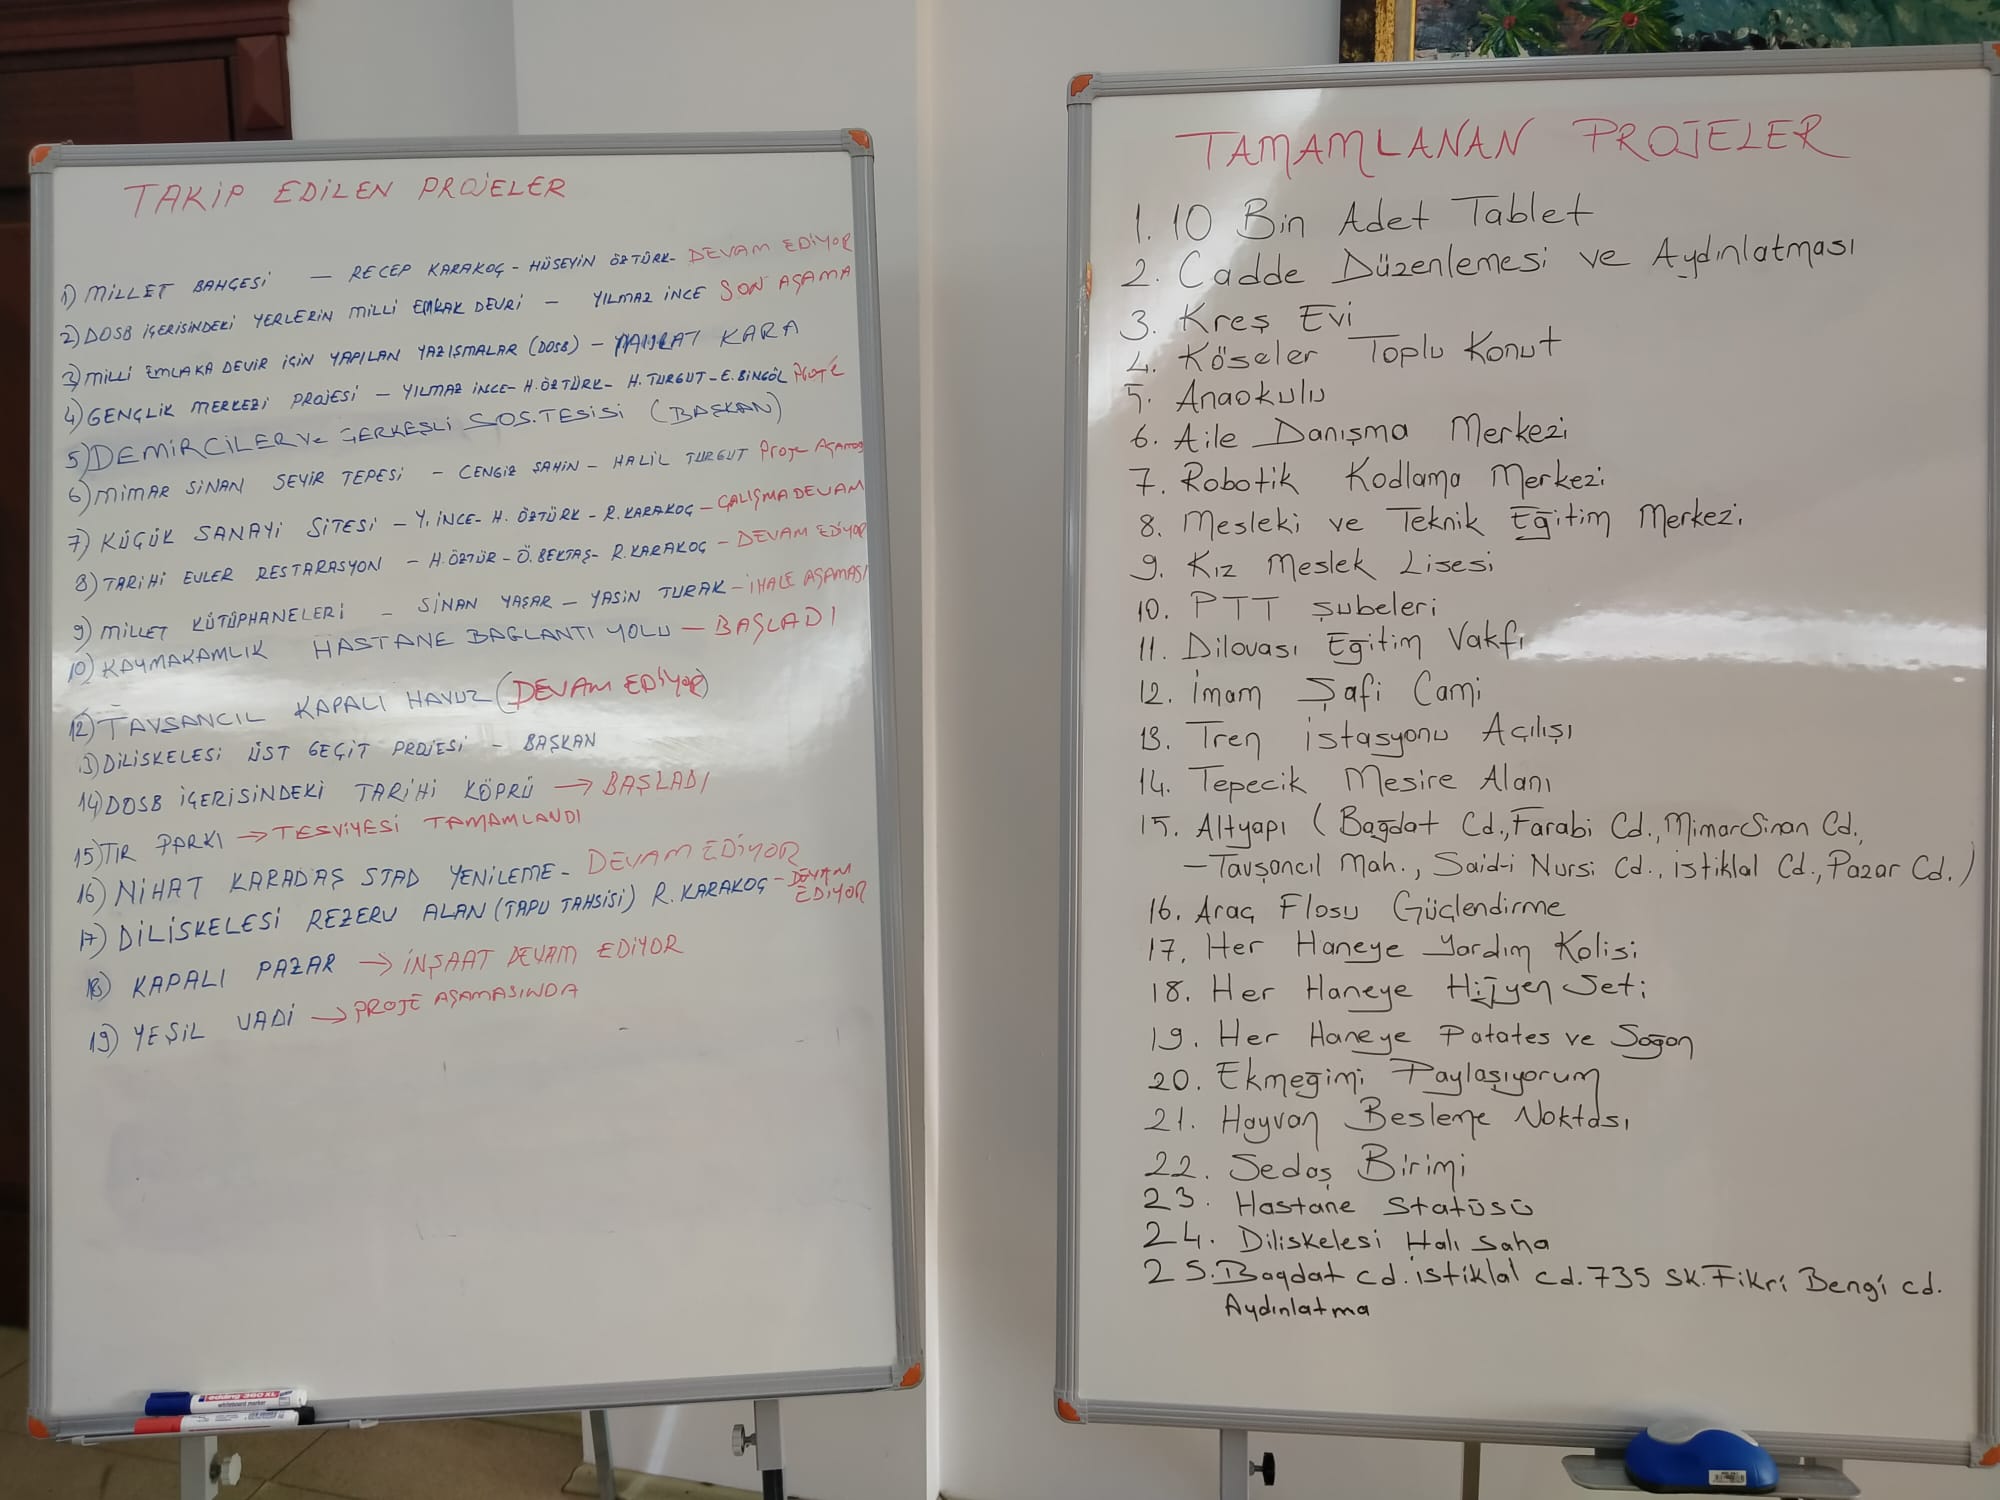 TAKİP EDİLEN PROJELER
1) MİLLET BAHÇESİ — RECEP KARAKOÇ - HÜSEYİN ÖZTÜRK - DEVAM EDİYOR
2) DOSB İÇERİSİNDEKİ YERLERİN MİLLİ EMLAK DEVRİ — YILMAZ İNCE SON AŞAMA
3) MİLLİ EMLAKA DEVİR İÇİN YAPILAN YAZIŞMALAR (DOSB) - KARA
4) GENÇLİK MERKEZİ PROJESİ — YILMAZ İNCE - H.ÖZTÜRK - H. TURGUT - E. BİNGÖL PROJE
5) DEMİRCİLER Ve ÇERKEŞLİ SOS.TESİSİ (BAŞKAN)
6) MİMAR SİNAN SEYİR TEPESİ - CENGİZ ŞAHİN - HALİL TURGUT Proje Aşaması
7) KÜÇÜK SANAYİ SİTESİ - Y. İNCE - H. ÖZTÜRK - R. KARAKOÇ - ÇALIŞMA DEVAM
8) TARİHİ EVLER RESTARASYON - H.ÖZTÜR - Ö. BEKTAŞ - R. KARAKOÇ - DEVAM EDİYOR
9) MİLLET KÜTÜPHANELERİ - SİNAN YAŞAR - YASİN TURAK - İHALE AŞAMASI
10) KAYMAKAMLIK HASTANE BAĞLANTI YOLU — BAŞLADI
12) TAVŞANCIL KAPALI HAVUZ (DEVAM EDİYOR)
3) DİLİSKELESİ ÜST GEÇİT PROJESİ - BAŞKAN
14) DOSB İÇERİSİNDEKİ TARİHİ KÖPRÜ → BAŞLADI
15) TIR PARKI → TESVİYESİ TAMAMLANDI
16) NİHAT KARADAŞ STAD YENİLEME - DEVAM EDİYOR
17) DİLİSKELESİ REZERV ALAN (TAPU TAHSİSİ) R. KARAKOÇ - DEVAM EDİYOR
18) KAPALI PAZAR → İNŞAAT DEVAM EDİYOR
19) YEŞİL VADİ → PROJE AŞAMASINDA
edding 360 XL
whiteboard marker
TAMAMLANAN PROJELER
1. 10 Bin Adet Tablet
2. Cadde Düzenlemesi ve Aydınlatması
3. Kreş Evi
4. Köseler Toplu Konut
5. Anaokulu
6. Aile Danışma Merkezi
7. Robotik Kodlama Merkezi
8. Mesleki ve Teknik Eğitim Merkezi
9. Kız Meslek Lisesi
10. PTT Şubeleri
11. Dilovası Eğitim Vakfı
12. İmam Şafi Cami
13. Tren İstasyonu Açılışı
14. Tepecik Mesire Alanı
15. Altyapı (Bağdat Cd., Farabi Cd., Mimar Sinan Cd,
- Tavşancıl Mah., Said-i Nursi Cd., İstiklal Cd., Pazar Cd.)
16. Araç Flosu Güçlendirme
17. Her Haneye Yardım Kolisi
18. Her Haneye Hijyen Seti
19. Her Haneye Patates ve Soğan
20. Ekmeğimi Paylaşıyorum
21. Hayvan Besleme Noktası
22. Sedaş Birimi
23. Hastane Statüsü
24. Diliskelesi Halı Saha
25. Bagdat cd. istiklal cd. 735 sk. Fikri Bengi cd.
Aydınlatma